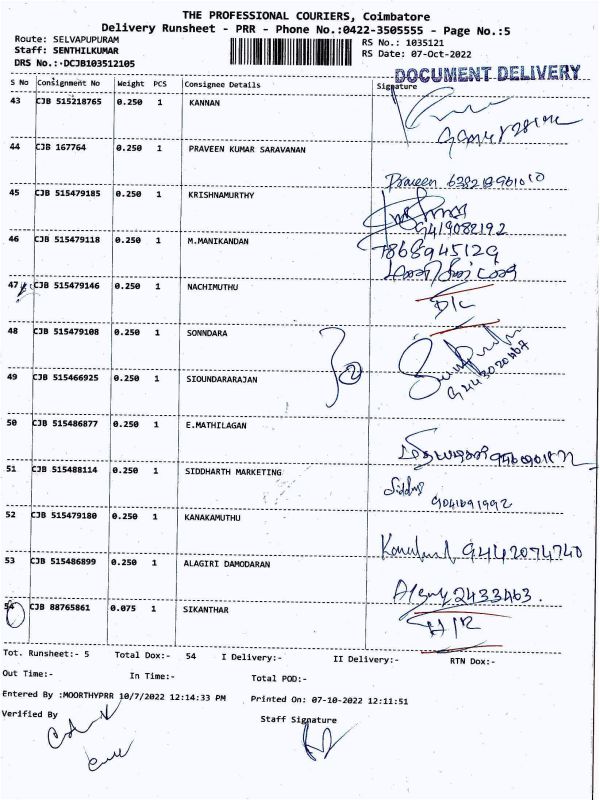 THE PROFESSIONAL COURIERS, Coimbatore
Delivery Runsheet - PRR - Phone No.:0422-3505555 - Page No.:5
Route: SELVAPUPURAM
Staff: SENTHILKUMAR
DRS No.:-DCJB103512105
RS No.: 1035121
RS Date: 07-Oct-2022
DOCUMENT DELIVERY
S No Consignment No Weight PCS Consignee Details Signature
43 CJB 515218765 0.250 1 KANNAN
44 CJB 167764 0.250 1 PRAVEEN KUMAR SARAVANAN
Praveen
45 CJB 515479185 0.250 1 KRISHNAMURTHY
9419082192
46 CJB 515479118 0.250 1 M.MANIKANDAN
7868945129
47 CJB 515479146 0.250 1 NACHIMUTHU
D/L
48 CJB 515479108 0.250 1 SONNDARA
2
49 CJB 515466925 0.250 1 SIOUNDARARAJAN
50 CJB 515486877 0.250 1 E.MATHILAGAN
51 CJB 515488114 0.250 1 SIDDHARTH MARKETING
9041091992
52 CJB 515479180 0.250 1 KANAKAMUTHU
9442074740
53 CJB 515486899 0.250 1 ALAGIRI DAMODARAN
2433463.
54 CJB 88765861 0.075 1 SIKANTHAR
Tot. Runsheet:- 5 Total Dox:- 54 I Delivery:- II Delivery:- RTN Dox:-
Out Time:- In Time:- Total POD:-
Entered By :MOORTHYPRR 10/7/2022 12:14:33 PM Printed On: 07-10-2022 12:11:51
Verified By Staff Signature